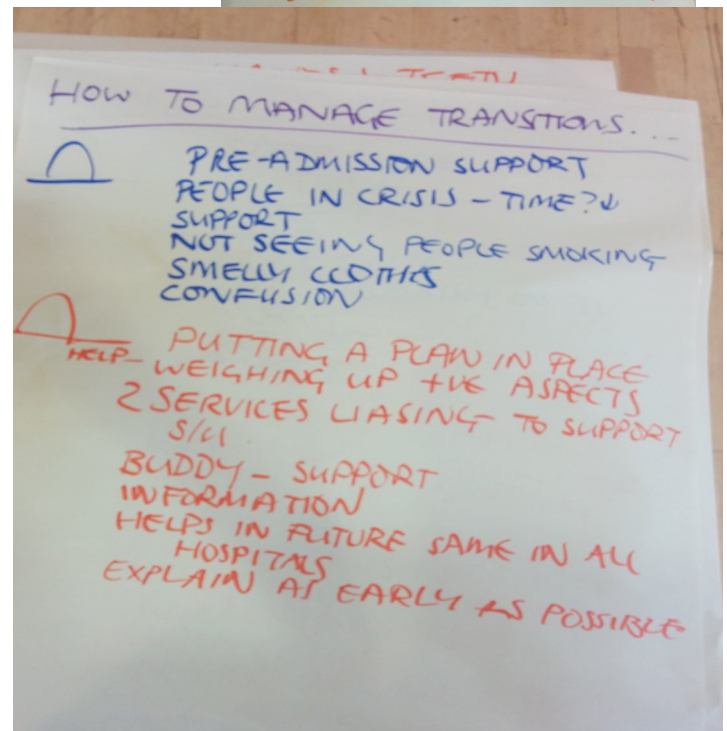 HOW TO MANAGE TRANSITIONS...
PRE-ADMISSION SUPPORT
PEOPLE IN CRISIS - TIME?↓
SUPPORT
NOT SEEING PEOPLE SMOKING
SMELLY CLOTHES
CONFUSION
PUTTING A PLAN IN PLACE
HELP - WEIGHING UP +VE ASPECTS
2 SERVICES LIASING TO SUPPORT
S/U.
BUDDY - SUPPORT
INFORMATION
HELPS IN FUTURE SAME IN ALL
HOSPITALS
EXPLAIN AS EARLY AS POSSIBLE